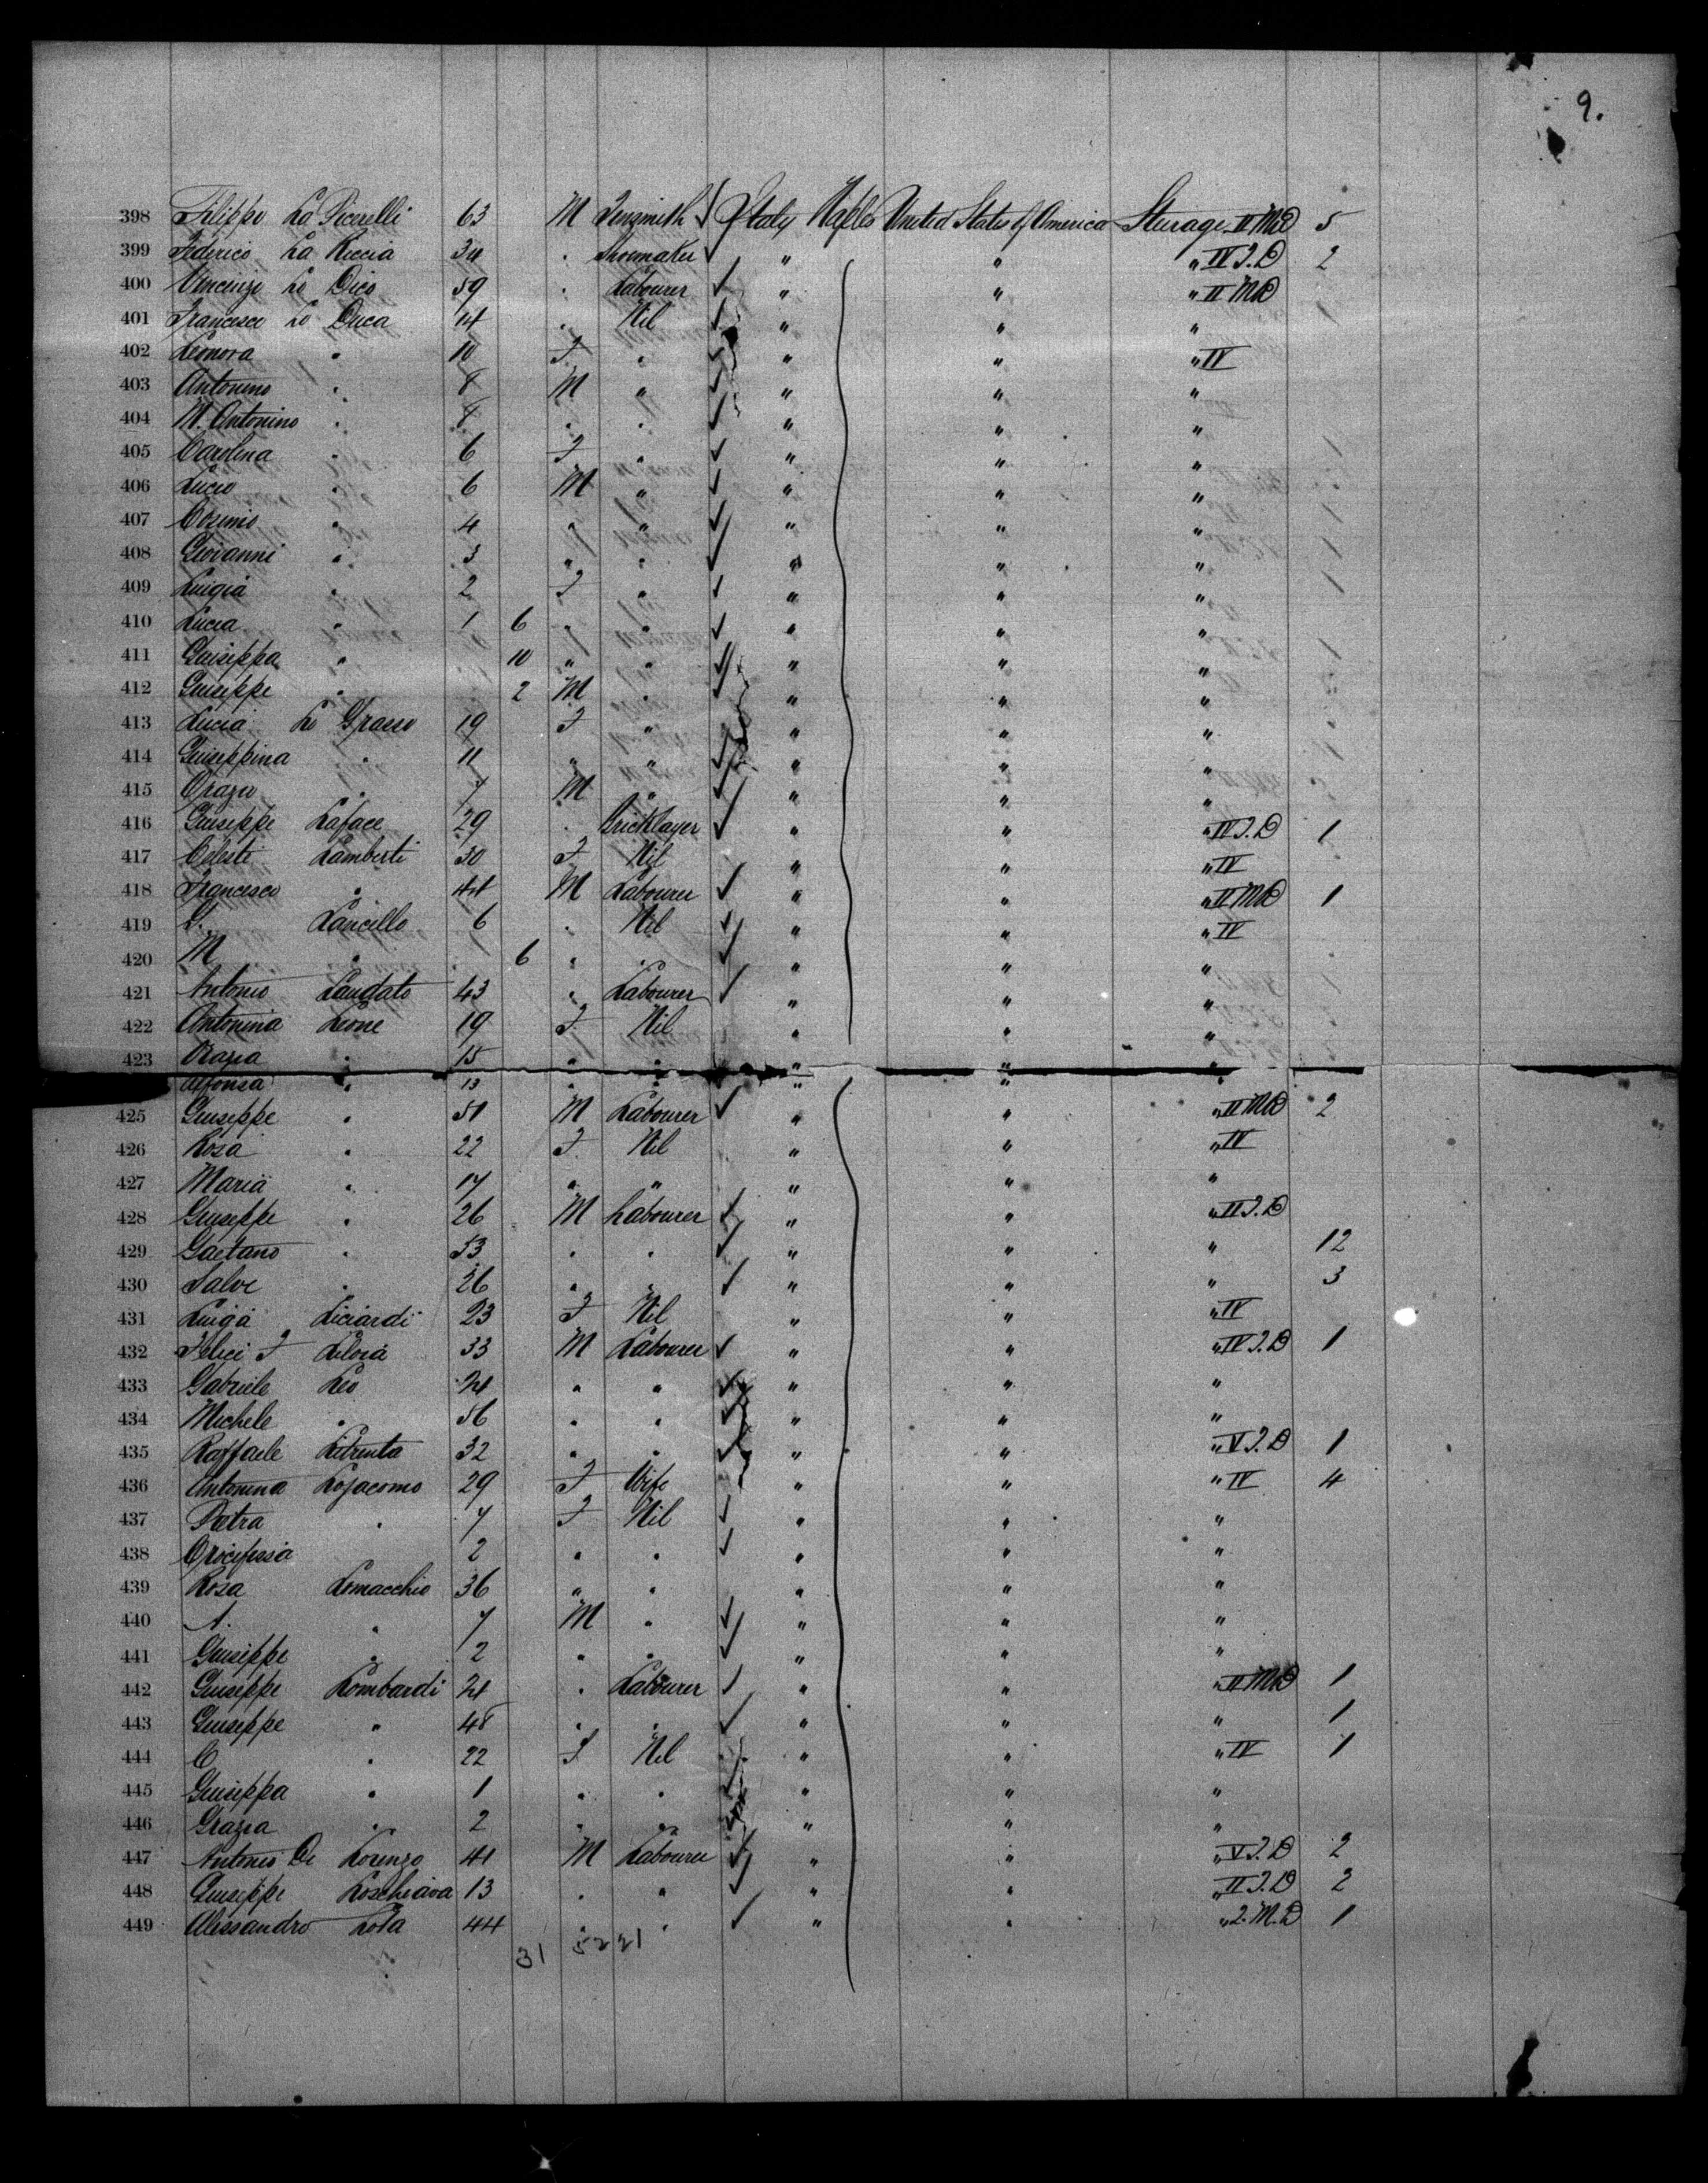 9.
398 Filippo Lo Picerelli 63 M Tinsmith Italy Naples United States of America Sturage II M.D 5
399 Federico La Riccia 34 " Shoemaker " " " IV J.D 2
400 Vincenzo Lo Dico 59 " Labourer " " " II M.D
401 Francesco Lo Duca 14 " Nil " " "
402 Leonora " 10 F " " " " IV
403 Antonino " 8 M " " " "
404 M. Antonino " 8 " " " " "
405 Carolina " 6 F " " " "
406 Lucio " 6 M " " " "
407 Cosimo " 4 " " " " "
408 Giovanni " 3 " " " " "
409 Luigia " 2 F " " " "
410 Lucia " 1 6 " " " " "
411 Guiseppa " 10 " " " " "
412 Guiseppe " 2 M " " " "
413 Lucia Lo Grasso 19 F " " " "
414 Guiseppina " 11 " " " " "
415 Orazio " 7 M " " " "
416 Guiseppe Laface 29 " Bricklayer " " " IV J.D 1
417 Celeste Lamberti 30 F Nil " " " IV
418 Francesco " 44 M Labourer " " " II M.D 1
419 G. Lancillo 6 " Nil " " " IV
420 M " 6 " " " " "
421 Antonio Laudato 43 " Labourer " " "
422 Antonina Leone 19 F Nil " " "
423 Grazia " 15 " " " " "
Alfonsa " 13 " " " " "
425 Giuseppe " 51 M Labourer " " " II M.D 2
426 Rosa " 22 F Nil " " " IV
427 Maria " 17 " " " " "
428 Giuseppe " 26 M Labourer " " " II J.D
429 Gaetano " 53 " " " " " 12
430 Salve " 26 " " " " " 3
431 Luiga Liciardi 23 F Nil " " " IV
432 Felici F 33 M Labourer " " " IV J.D 1
433 Gabriele Leo 24 " " " " "
434 Michele " 56 " " " " "
435 Raffaele 32 " " " " " V J.D 1
436 Antonina Lojacomo 29 F Wife " " " IV 4
437 Pietra " 7 F Nil " " "
438 Crocifissa 2 " " " " "
439 Rosa Lomacchio 36 " " " " "
440 A. " 7 M " " " "
441 Giuseppe " 2 " " " " "
442 Giuseppe Lombardi 24 " Labourer " " " II M.D 1
443 Giuseppe " 48 " " " " " 1
444 C " 22 F Nil " " " IV 1
445 Giuseppa " 1 " " " " "
446 Grazia " 2 " " " " "
447 Antonio Di Lorenzo 41 M Labourer " " " V J.D 2
448 Giuseppe Loschiava 13 " " " " " II J.D 2
449 Alessandro Lota 44 " " " " " 2. M.D 1
31 52 21